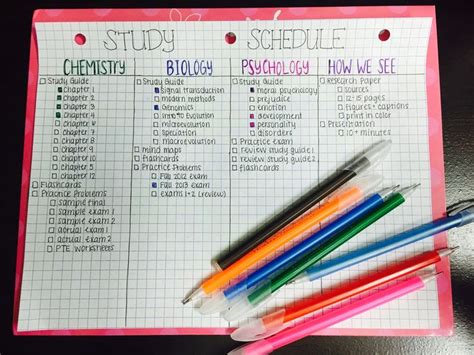 STUDY SCHEDULE
CHEMISTRY
Study Guide
Chapter 1
Chapter
Chapter
Chapter 4
Chapter
Chapter
Chapter
Chapter
Chapter
Chapter 12
Flashcards
Practice Problems
sample final
sample exam 1
sample exam 2
actual exam 1
actual exam 2
PTE worksheets
BIOLOGY
Study Guide
signal transduction
modern methods
Genomics
Intro Evolution
microevolution
speciation
macroevolution
mind maps
flashcards
Practice Problems
Fall 2012 exam
Fall 2013 exam
exams 1+2 (review)
PSYCHOLOGY
Study Guide
moral psychology
prejudice
emotion
development
personality
disorders
Practice exam
review study guide 1
review study guide 2
HOW WE SEE
Research Paper
sources
12-15 pages
figures + captions
print in color
Presentation
10+ minutes